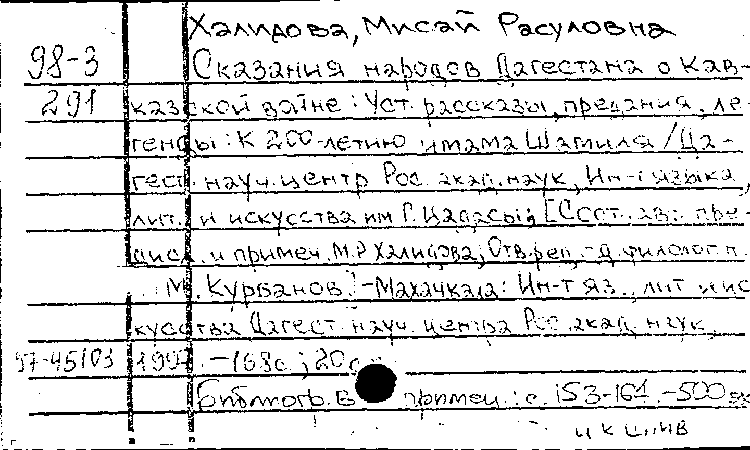 Халидова, Мисай Расуловна
98-3 Сказания народов Дагестана о Кав-
291 казской войне: Уст. рассказы, предания, ле-
генды: К 200-летию имама Шамиля / Да-
гест. науч. центр Рос. акад. наук, Ин-т языка,
лит. и искусства им Г. Цадасы; [Сост., ав. пре-
дисл. и примеч. М.Р. Халидова; Отв. ред. - д. филолог. н.
М. Курбанов]. - Махачкала: Ин-т яз., лит и ис-
кусства Дагест. науч. центра Рос. акад. наук,
97-45103 1997. - 168с.; 20с
Библиогр. в примеч.: с. 153-161. - 500 эк